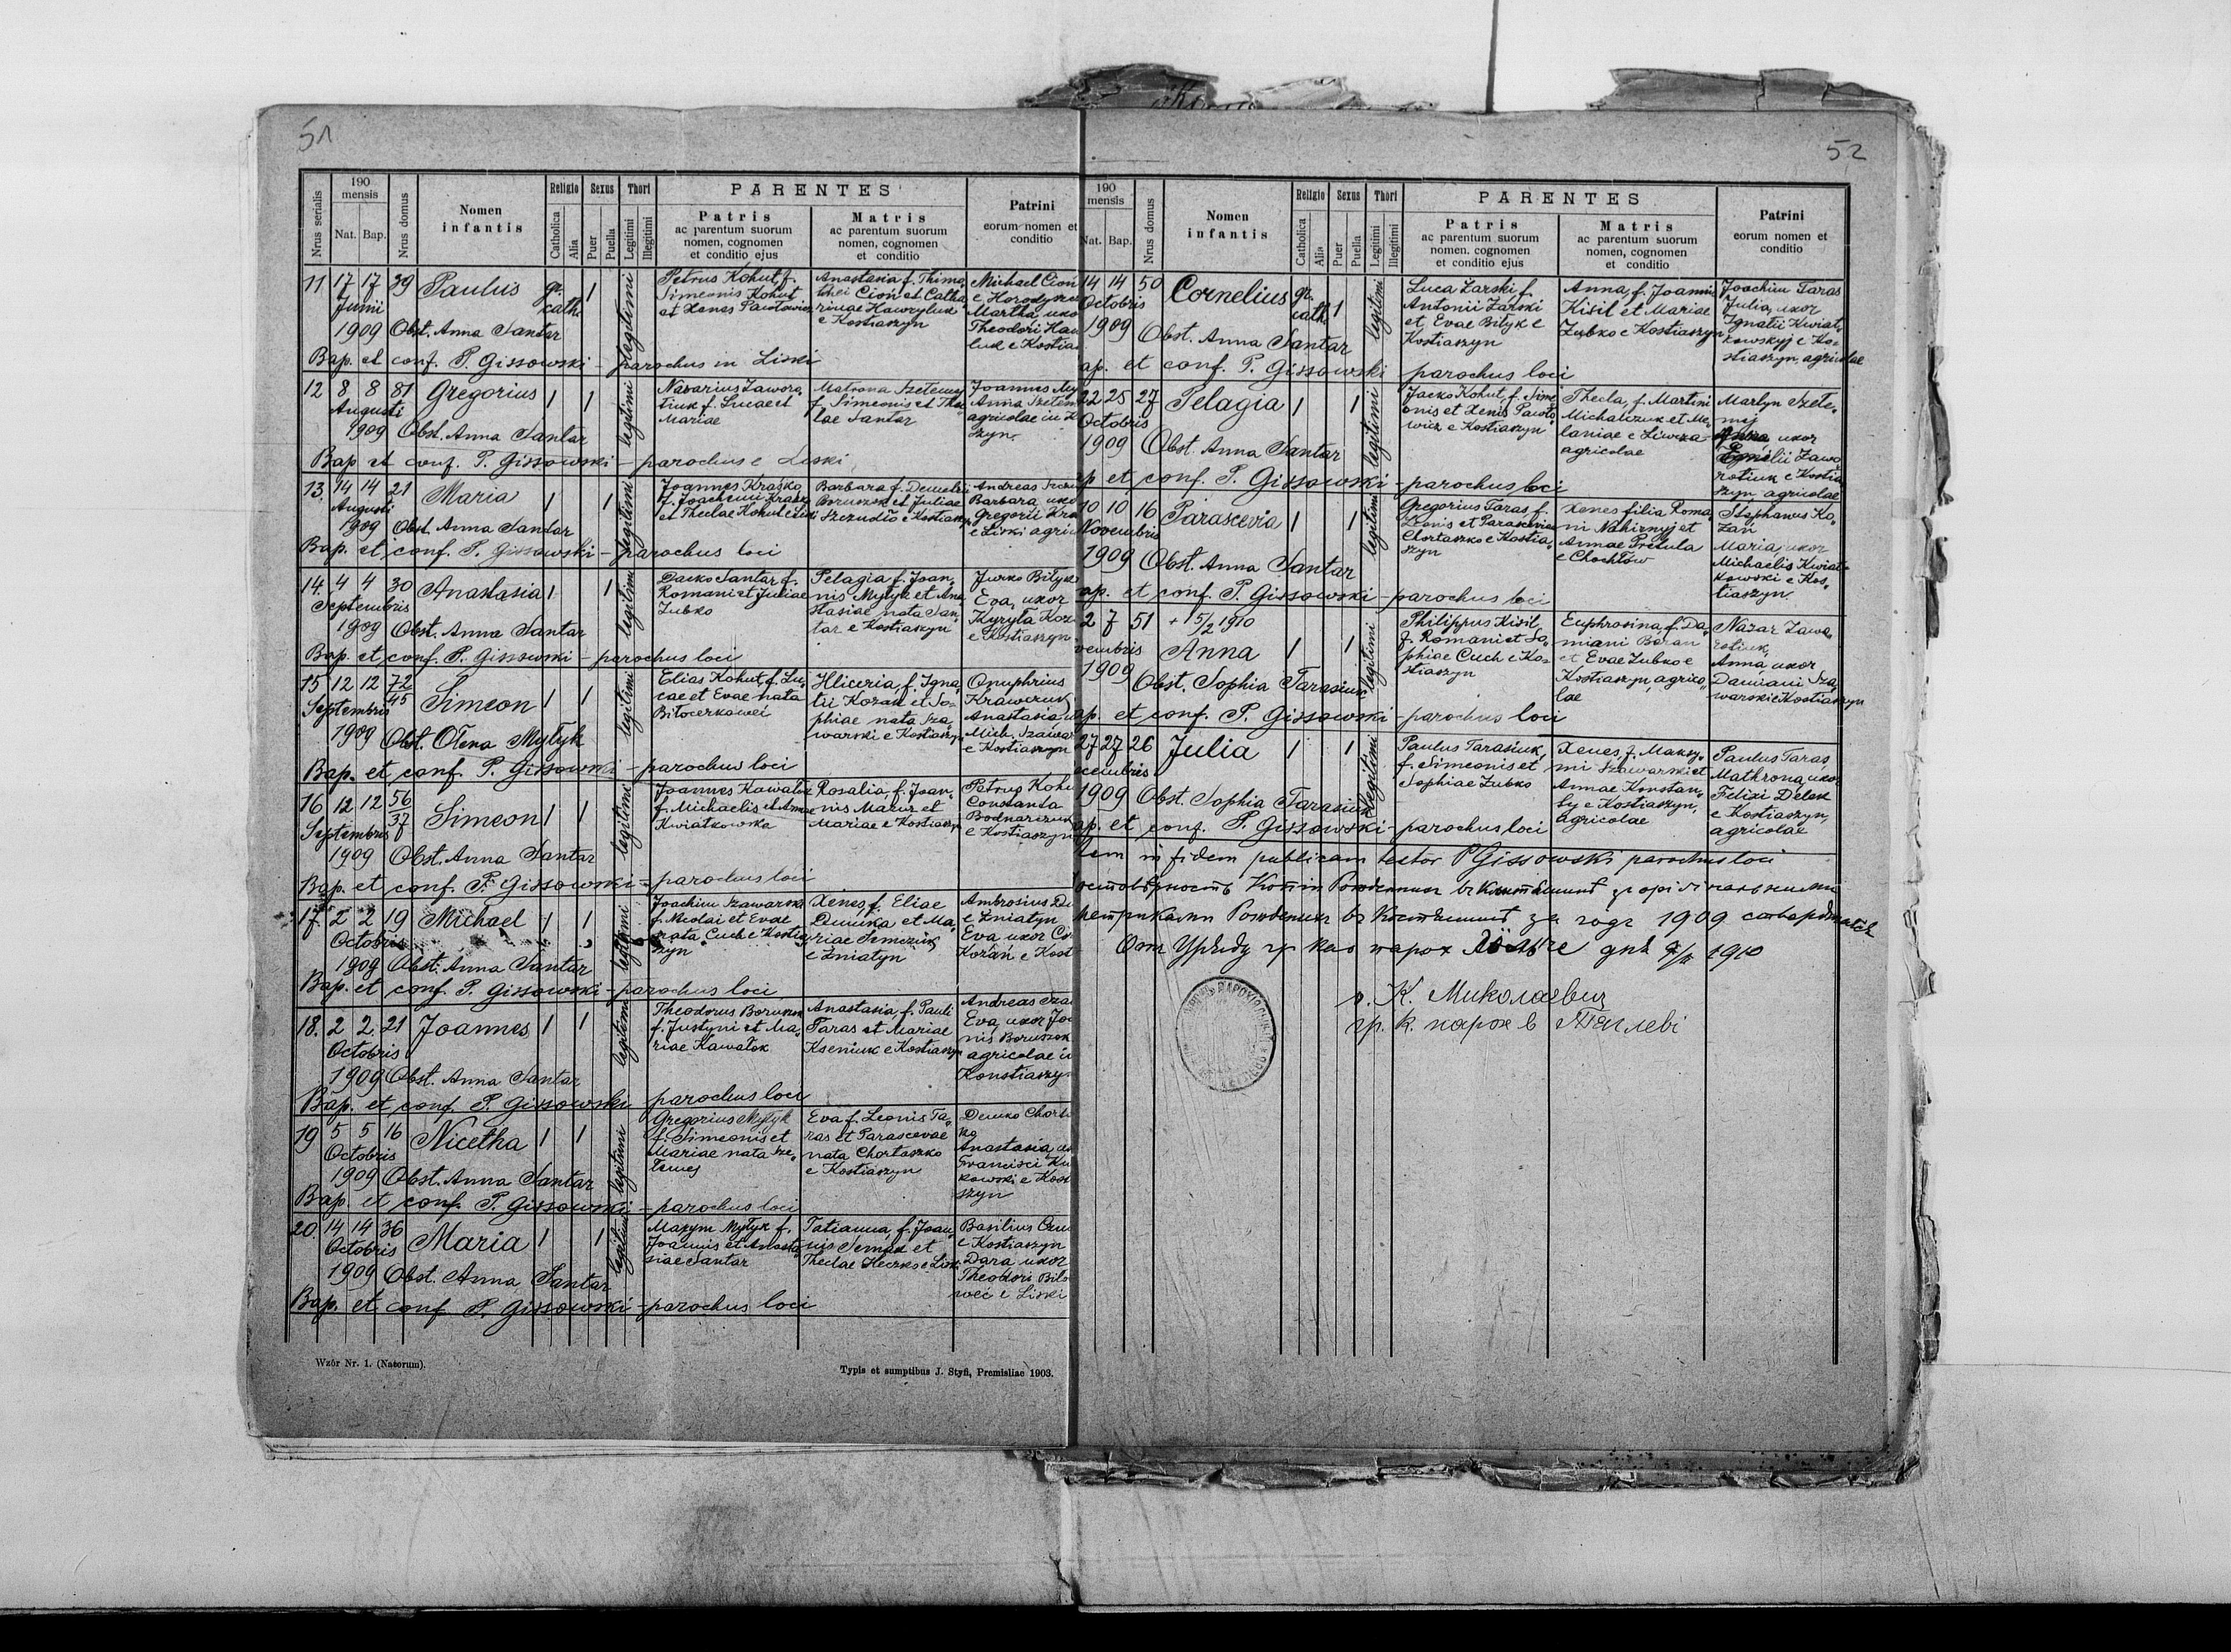 51
190
mensis
Nrus serialis
Nat. Bap.
Nrus domus
Nomen
infantis
Religio
Catholica
Alia
Sexus
Puer
Puella
Thori
Legitimi
Illegitimi
PARENTES
Patris
ac parentum suorum
nomen, cognomen
et conditio ejus
Matris
ac parentum suorum
nomen, cognomen
et conditio
Patrini
eorum nomen et
conditio
11 17 17 39 Paulus gr. cath. 1 legitimi
Junii
1909 Obst. Anna Santar
Petrus Kohut, f.
Simeonis Kohut
et Xenes Pawłowicz
Anastasia f. Thimo
thei Cion et Catha
rinae Hawryluk
e Kostiaszyn
Michael Cion
e Horodysz
Martha uxo
Theodori Haw
luk e Kostia
Bap. et conf. P. Gissowski - parochus in Liski
12 8 8 81 Gregorius 1 1 legitimi
Augusti
1909 Obst. Anna Santar
Nazarius Zaworo
tiuk f. Lucae et
Mariae
Matrona Szetemej
f. Simeonis et The
lae Santar
Joannes My
Anna Szetem
agricolae in K
szyn.
Bap et conf. P. Gissowski - parochus e Liski
13. 14 14 21 Maria 1 1 legitimi
Augusti
1909 Obst. Anna Santar
Joannes Kraśko
f. Joachimi Kraśko
et Theclae Kohut e Liski
Barbara f. Demetrii
Boruszok et Juliae
Szczudło e Kostiaszyn
Andreas
Barbara uxo
Gregorii Kra
e Liski agri
Bap. et conf. P. Gissowski - parochus loci
14. 4 4 30 Anastasia 1 1 legitimi
Septembris
1909 Obst. Anna Santar
Dacko Santar f.
Romani et Juliae
Zubko
Pelagia f. Joan
nis Mytyk et Ana
stasiae nata San
tar e Kostiaszyn
Jurko Biłyk
Eva, uxor
Kyryła Koz
e Kostiaszyn
Bap. et conf. P. Gissowski - parochus loci
15 12 12 72 45 Simeon 1 1 legitimi
Septembris
1909 Obst. Ołena Mytyk
Elias Kohut, f. Lu
cae et Evae nata
Biłocerkoweć
Hliceria, f. Igna
tii Kozak et So
phiae nata Sza
warski e Kostiaszyn
Onuphrius
Krawczuk
Anastasia, u
Mich. Szawar
e Kostiaszyn
Bap. et conf. P. Gissowski - parochus loci
16 12 12 56 37 Simeon 1 1 legitimi
Septembris
1909 Obst. Anna Santar
Joannes Kawałok
f. Michaelis et Annae
Kwiatkowska
Rosalia, f. Joan
nis Mazur et
Mariae e Kostiaszyn
Petrus Kohu
Constantia
Bodnarczuk
e Kostiaszyn
Bap. et conf. P. Gissowski - parochus loci
17. 2 2 19 Michael 1 1 legitimi
Octobris
1909 Obst. Anna Santar
Joachim Szawarski
f. Nicolai et Evae
nata Cuch e Kostia
szyn
Xenes f. Eliae
Dmitka et Ma
riae Semczuk
e Żniatyn
Ambrosius D
e Żniatyn
Eva uxor
Kozań e Kost
Bap. et conf. P. Gissowski - parochus loci
18. 2 2 21 Joannes 1 1 legitimi
Octobris
1909 Obst. Anna Santar
Theodorus Boruszok
f. Justyni et Ma
riae Kawałok
Anastasia, f. Pauli
Taras et Mariae
Kseniuk e Kostiaszyn
Andreas Sza
Eva, uxor Jo
nis Boruszok
agricolae i
Konstiaszy
Bap. et conf. P. Gissowski - parochus loci
19 5 5 16 Nicetha 1 1 legitimi
Octobris
1909 Obst. Anna Santar
Gregorius Mytyk
f. Simeonis et
Mariae nata Sze
temej
Eva f. Leonis Ta
ras et Parascevae
nata Chortaszko
e Kostiaszyn
Demko Chort
ko
Anastasia, u
Francisci Kw
kowski e Kost
szyn
Bap. et conf. P. Gissowski - parochus loci
20. 14 14 36 Maria 1 1 legitimi
Octobris
1909 Obst. Anna Santar
Maxym Mytyk f.
Joannis et Anasta
siae Santar
Tatianna, f. Joan
nis Semak et
Theclae Heczko e Liski
Basilius
e Kostiaszyn
Dara uxor
Theodori Biło
weć e Liski
Bap. et conf. P. Gissowski - parochus loci
Wzór Nr. 1. (Natorum).
Typis et sumptibus J. Styfi, Premisliae 1903.
52
190
mensis
Nat. Bap.
Nrus domus
Nomen
infantis
Religio
Catholica
Alia
Sexus
Puer
Puella
Thori
Legitimi
Illegitimi
PARENTES
Patris
ac parentum suorum
nomen, cognomen
et conditio ejus
Matris
ac parentum suorum
nomen, cognomen
et conditio
Patrini
eorum nomen et
conditio
14 14 50 Cornelius gr. cath. 1 legitimi
Octobris
1909 Obst. Anna Santar
Luca Żarski f.
Antonii Żarski
et Evae Biłyk e
Kostiaszyn
Anna, f. Joannis
Kisil et Mariae
Zubko e Kostiaszyn
Joachim Taras
Julia, uxor
Ignatii Kwiat
kowskyj e Ko
stiaszyn, agricolae
ap. et conf. P. Gissowski parochus loci
22 25 27 Pelagia 1 1 legitimi
Octobris
1909 Obst. Anna Santar
Jacko Kohut, f. Sime
onis et Xenis Pawło
wicz e Kostiaszyn
Thecla, f. Martini
Michalczuk et Me
laniae e Liwcza
agricolae
Martyn Szete
mej
Anna uxor
Emilii Zawo
rotiuk e Kostia
szyn agricolae
ap et conf. P. Gissowski - parochus loci
10 10 16 Parascevia 1 1 legitimi
Novembris
1909 Obst. Anna Santar
Gregorius Taras f.
Leonis et Parasceviae
Chortaszko e Kostia
szyn
Xenes filia Roma
ni Nahirnyj et
Annae Pretula
e Chochłów
Stephanus Ko
zań
Maria, uxor
Michaelis Kwiat
kowski e Kos
tiaszyn
ap. et conf. P. Gissowski - parochus loci
2 7 51 + 15/2 1910
vembris Anna 1 1 legitimi
1909 Obst. Sophia Tarasiuk
Philippus Kisil,
f. Romani et So
phiae Cuch e Ko
stiaszyn
Euphrosina, f. Da
miani Baran
et Evae Zubko e
Kostiaszyn, agrico
lae
Nazar Zawo
rotiuk,
Anna uxor
Damiani Sza
warski e Kostiaszyn
ap. et conf. P. Gissowski - parochus loci
27 27 26 Julia 1 1 legitimi
cembris
1909 Obst. Sophia Tarasiuk
Paulus Tarasiuk,
f. Simeonis et
Sophiae Zubko
Xenes, f. Maksy
mi Szawarski et
Annae Konstan
ty e Kostiaszyn,
agricolae
Paulus Taras
Mathrona, uxor
Felixi Delek
e Kostiaszyn,
agricolae
ap. et conf. P. Gissowski - parochus loci
in fidem publicam testor PGissowski parochus loci
за годъ 1909
1910
о. К. Миколаєвич
гр. к. парох в